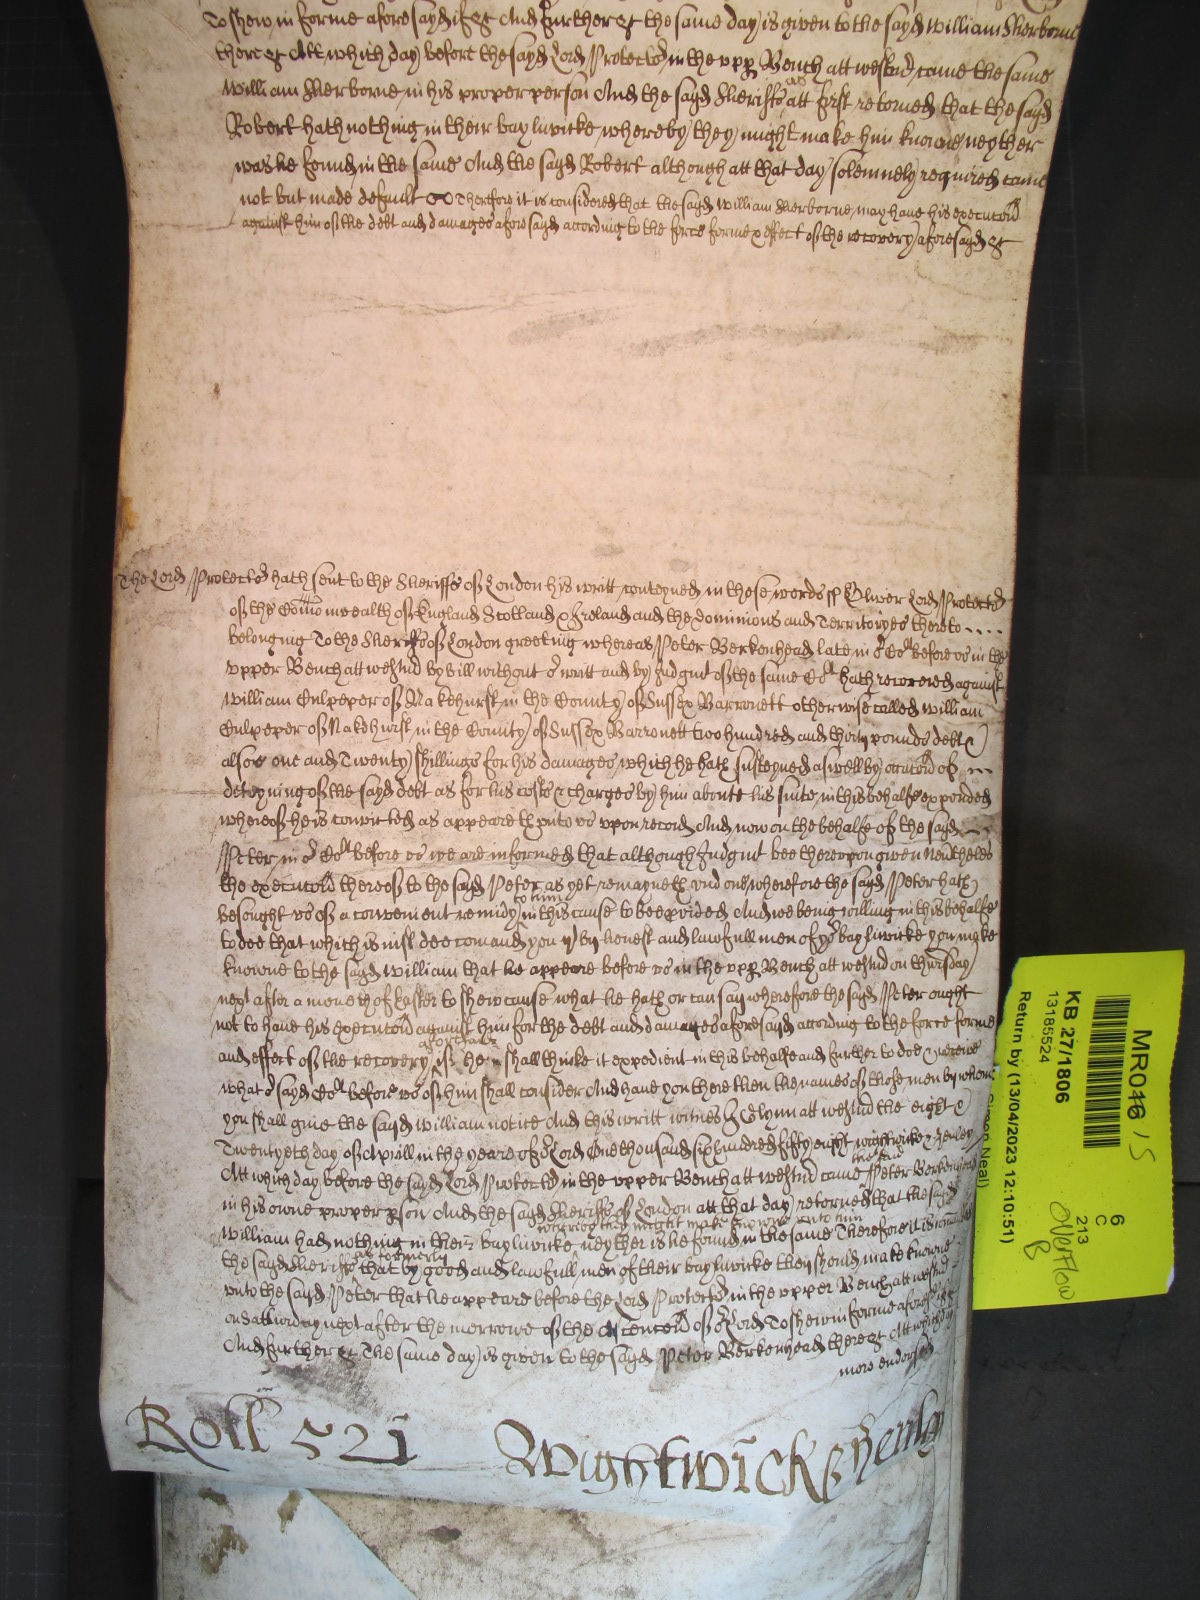 To shew in forme aforesayd if &c And further &c the same day is given to the sayd William Sherborne
there &c Att which day before the sayd Lord Protector in the vpp Bench att westmr came the same
William Sherborne in his proper person And the sayd Sheriffs as att first retorned that the sayd
Robert hath nothing in their bayliwicke whereby they might make him knowne neyther
was he found in the same And the sayd Robert although att that day solemnely required came
not but made default Therefore it is considered that the sayd William Sherborne may have his execucon
against him of the debt and damages aforesayd according to the force forme & effect of the recovery aforesayd &c
The Lord Protector hath sent to the Sheriffs of London his writt conteyned in these words ss Oliver Lord Protector
of the Comon wealth of England Scotland & Ireland and the Dominions and Territoryes thereto
belonging To the Sheriffs of London greeting whereas Peter Berkenhead late in or Cort before vs in the
vpper Bench att westmr by bill without or writt and by Judgmt of the same Cort hath recovered against
William Culpeper of Wakehurst in the County of Sussex Barronett otherwise called William
Culpeper of Wakehurst in the County of Sussex Barronett two hundred and thirty pounds debt &
alsoe one and Twenty shillings for his damages which he hath susteyned aswell by occacon of
deteyning of the sayd debt as for his costs & charges by him aboute his suite in this behalfe expended
whereof he is convicted as appeareth vnto vs vpon record And now on the behalfe of the sayd
Peter in or Cort before vs we are informed that although Judgmt bee therevpon given Nevthelesse
the execucon thereof to the sayd Peter as yet remayneth vndone wherefore the sayd Peter hath
besought vs of a convenient remidy to him in this cause to bee pvided And we being willing in this behalfe
to doe that which is iust doe comand you yt by honest and lawfull men of yor bayliwicke you make
knowne to the sayd William that he appeare before vs in the vpp Bench att westmr on thursday
next after a moneth of Easter to shew cause what he hath or can say wherefore the sayd Peter ought
not to have his execucon against him for the debt and damages aforesayd according to the force forme
and effect of the recovery aforesayd if he shall thinke it expedient in this behalfe and further to doe & receive
what or sayd Cort before vs of him shall consider And have you there then the names of those men by whome
you shall give the sayd William notice And this writt witnes J Glynn att westmr the eight &
Twentyeth day of Aprill in the yeare of or Lord One thousand six hundred fifty eight wightwicke & Henley
Att which day before the sayd Lord Protector in the vpper Bench att westmr came the said Peter Berkenhead
in his owne proper pson And the sayd Sheriffs of London att that day retorned that the sayd
William had nothing in their bayliwicke whereby they might make knowne vnto him neyther is he found in the same Therefore it is comanded
the sayd Sheriffs as formerly that by good and lawfull men of their bayliwicke they should make knowne
vnto the sayd Peter that he appeare before the Lord Protector in the vpper Bench att westmr
on Satturday next after the morrowe of the Ascencon of or Lord To shew in forme aforesayd if &c
And further &c The same day is given to the sayd Peter Berkenhead there &c Att which day
more endorsed
Roll 521 Wightwick & Henley
MR046 / S
KB 27/1806
13185524
Return by (13/04/2023 12:10:51)
Neal)
6
C
213
Overflow
8